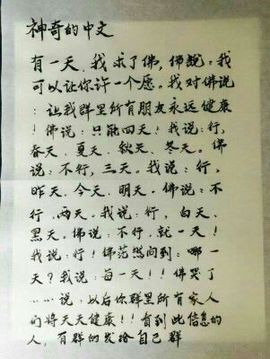 神奇的中文
有一天,我求了佛,佛说:我
可以让你许一个愿。我对佛说
:让我群里所有朋友永远健康
!佛说:只能四天!我说:行,
春天、夏天、秋天、冬天。佛
说:不行,三天。我说:行,
昨天、今天、明天。佛说:不
行,两天。我说:行,白天、
黑天。佛说:不行,就一天!
我说:行!佛茫然问到:哪一
天?我说:每一天!!佛哭了
……说:以后你群里所有家人
们将天天健康!!看到此信息的
人,有群的发给自己群